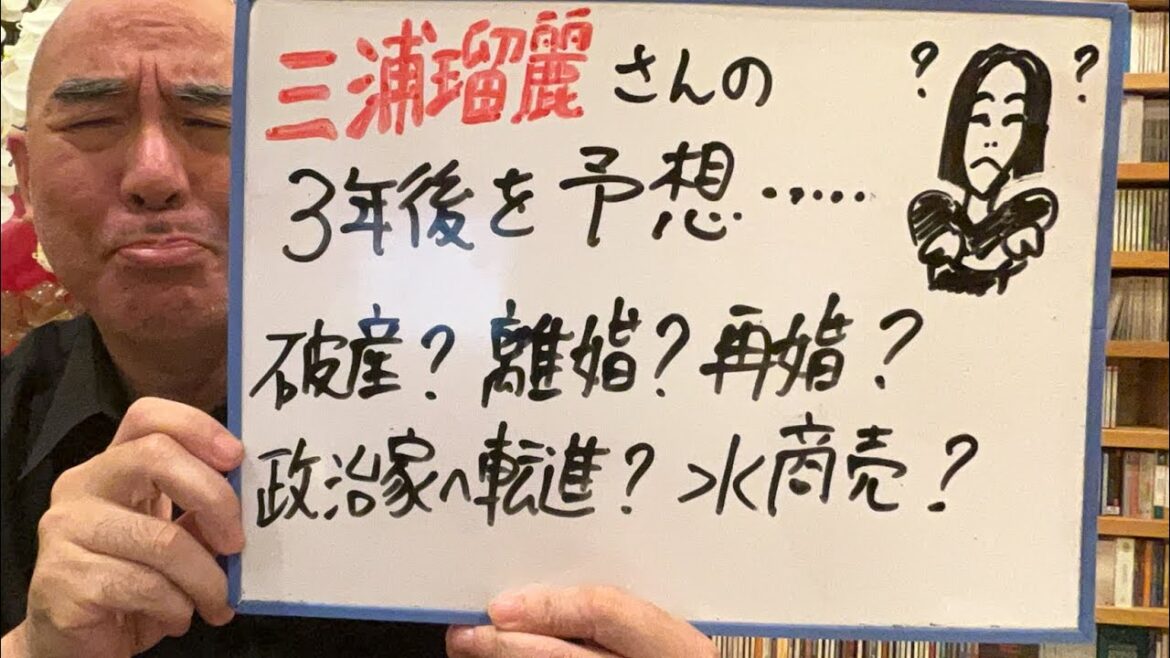 三浦瑠麗さんの
3年後を予想……
破産?離婚?再婚?
政治家へ転進?水商売?
? ?